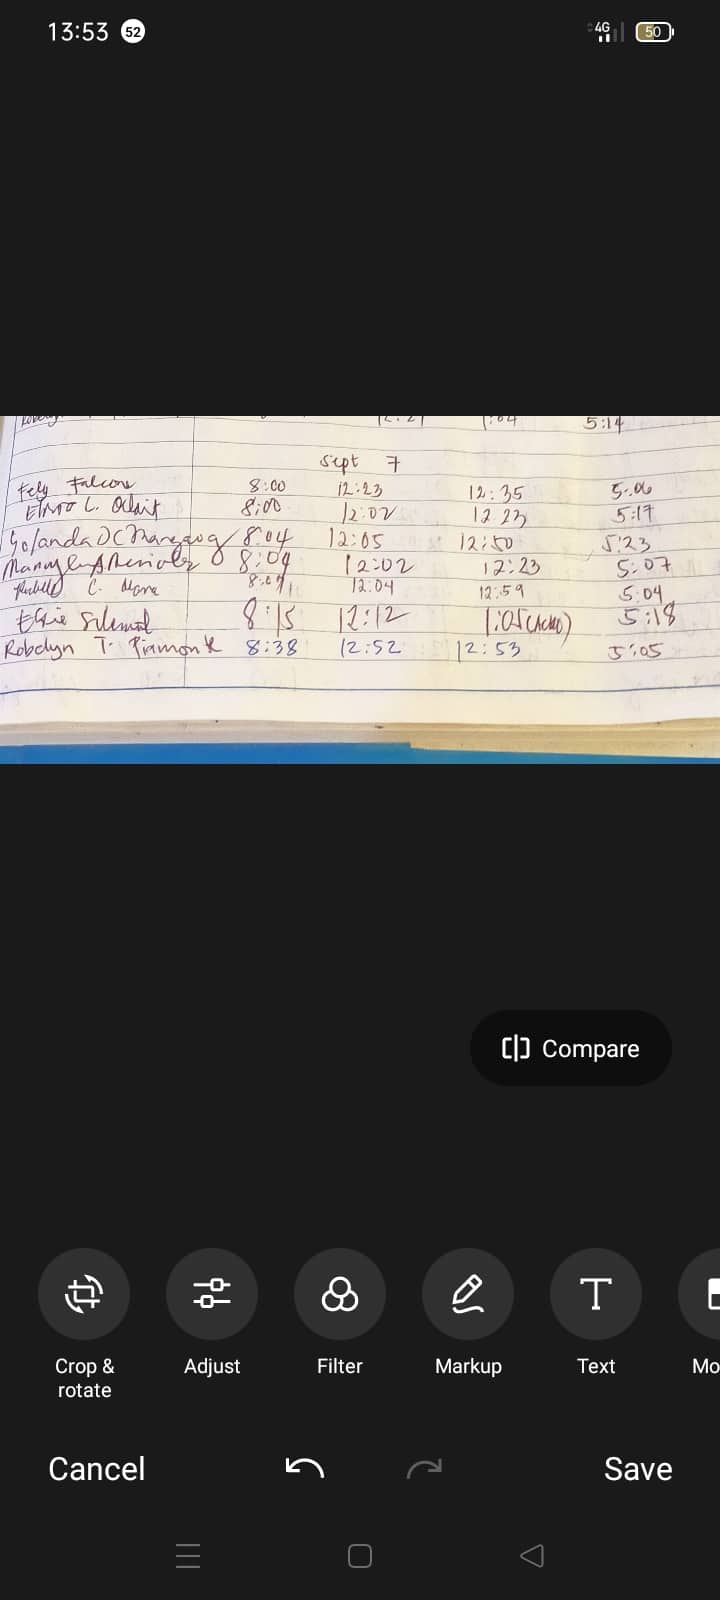 13:53 52 4G 50
1:04 5:14
Sept 7
Fely Falcone 8:00 12:23 12:35 5:06
Elmo L. 8:00 12:02 12 23 5:17
Yolanda DC 8:04 12:05 12:50 5:23
8:09 12:02 12:23 5:07
C. 12:04 12:59 5:04
Elsie 8:15 12:12 1:05 5:18
Robelyn T. 8:38 12:52 12:53 5:05
Compare
Crop & rotate
Adjust
Filter
Markup
Text
Mo
Cancel Save